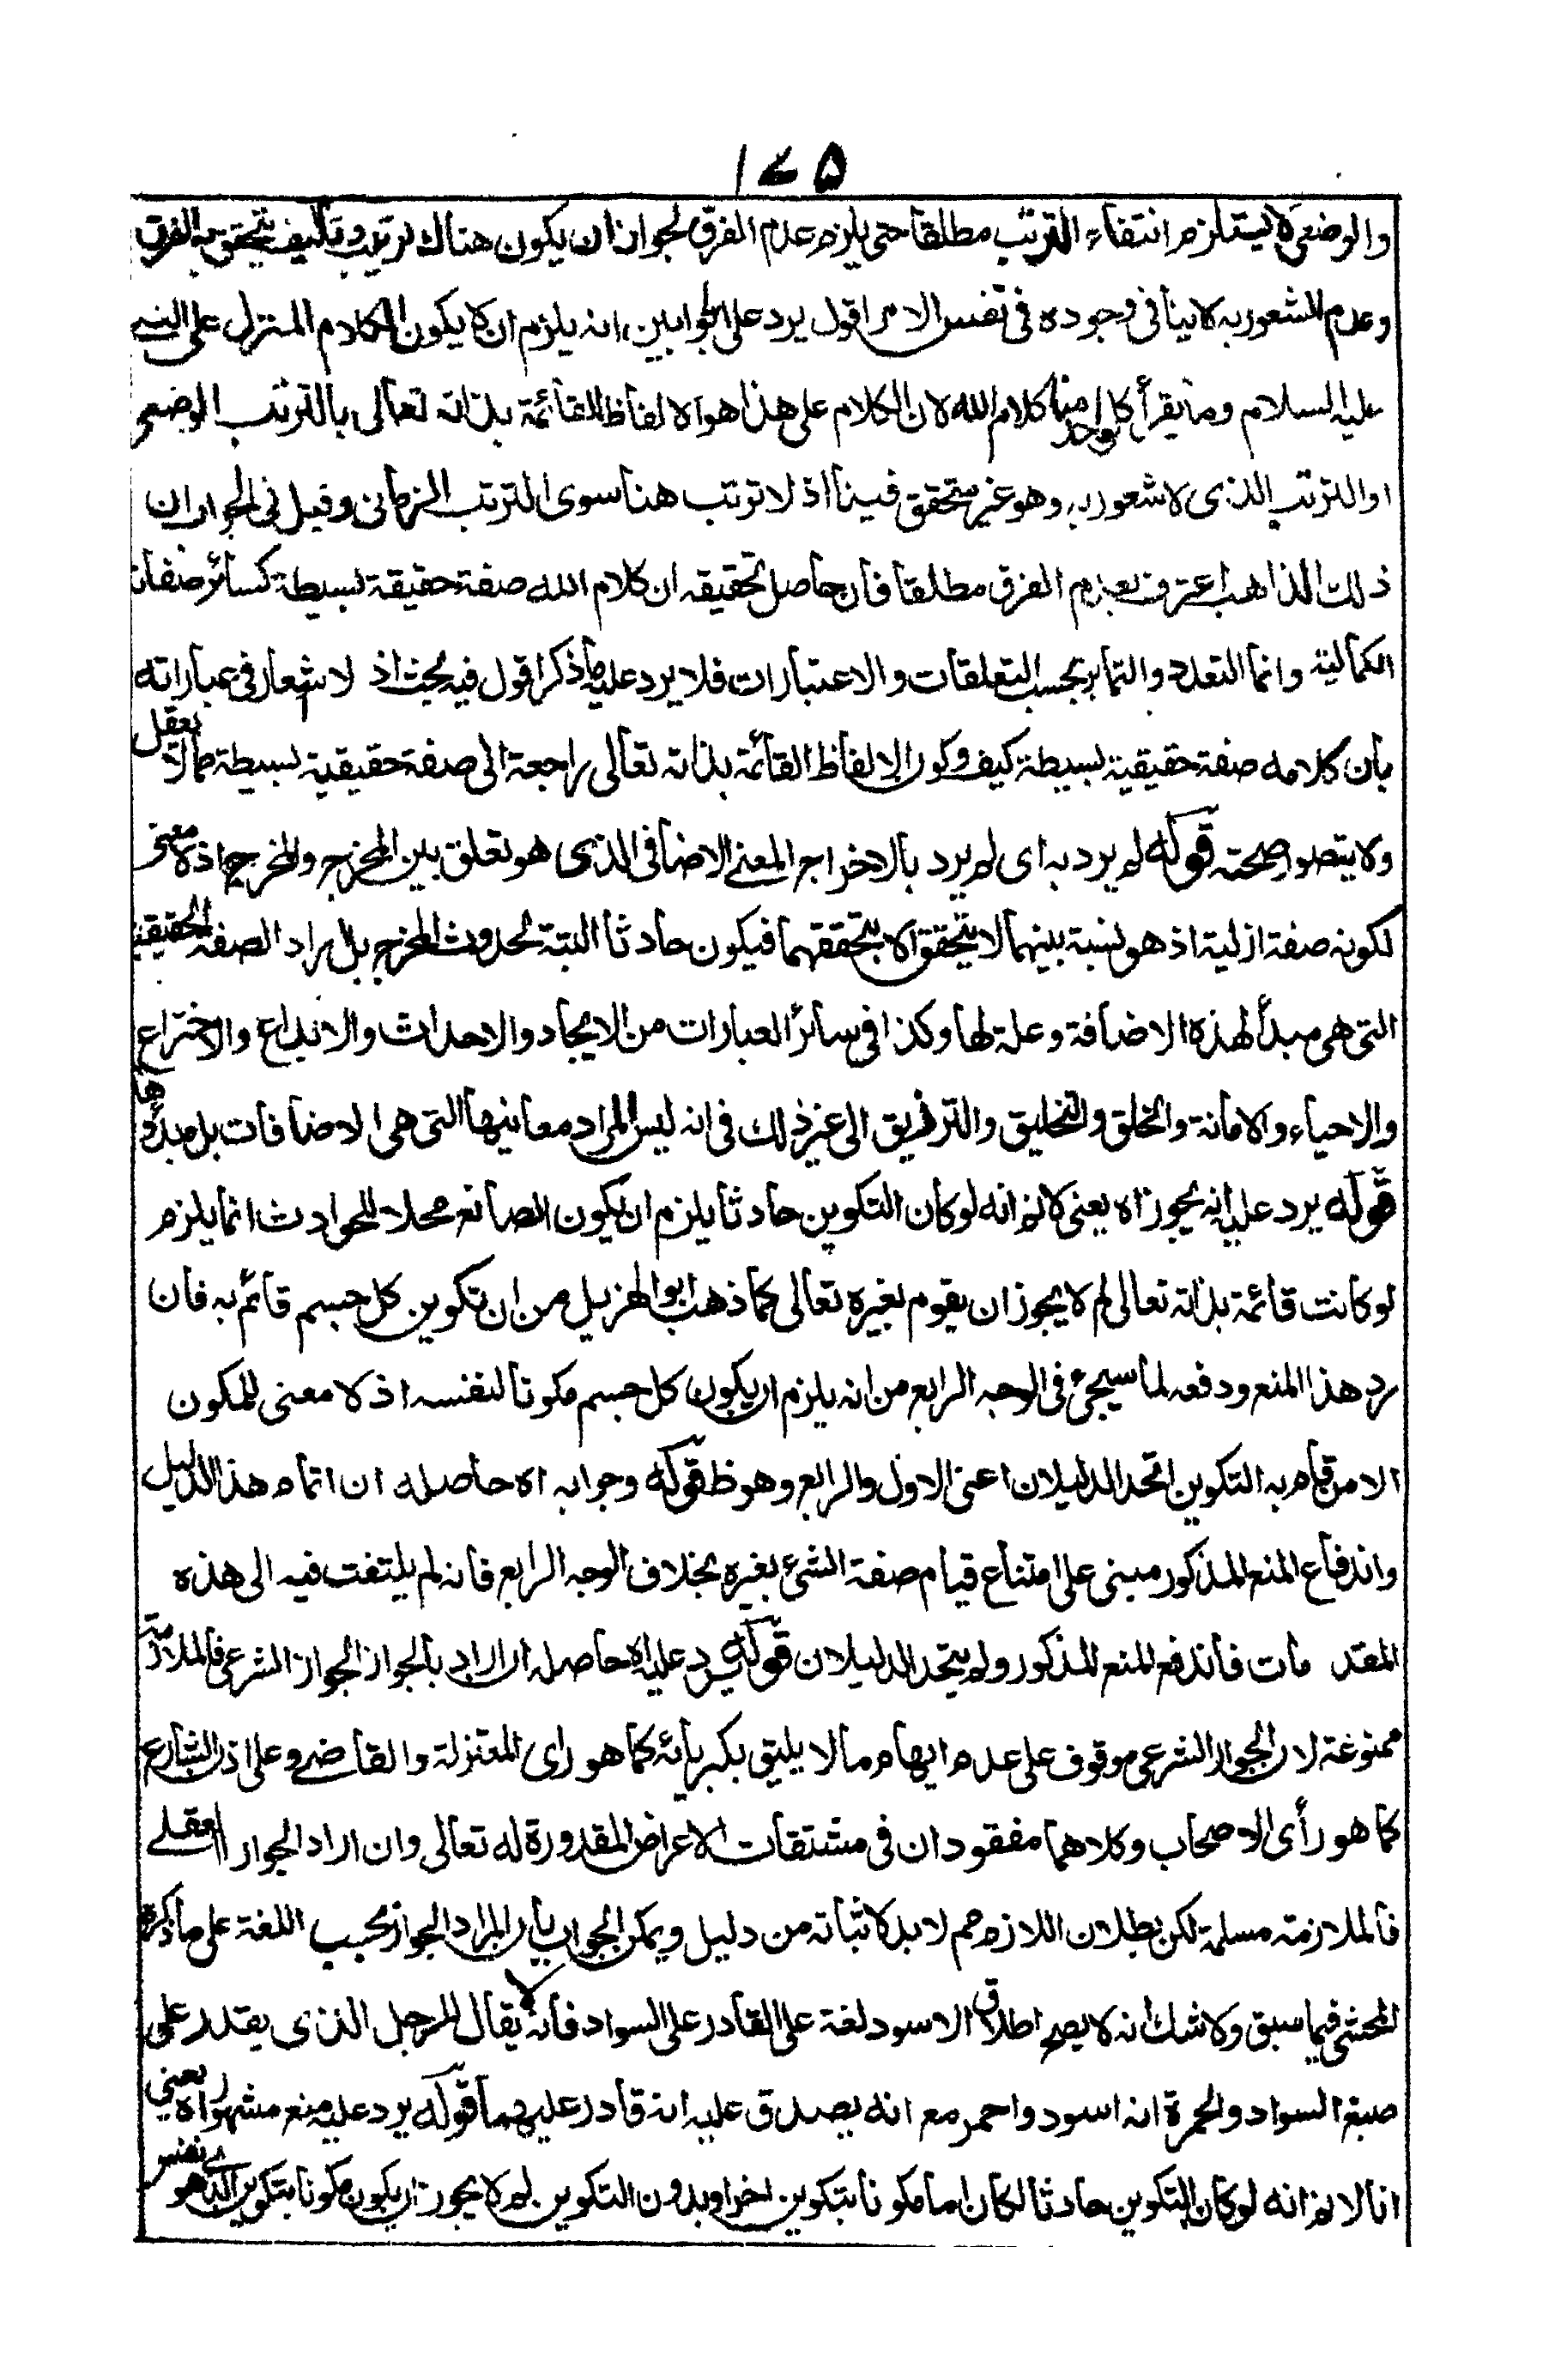 ١٧٥
والوضعى لا يستلزم انتفاء الترتب مطلقا حتى يلزم عدم الفرق لجواز ان يكون هناك ترتيب وتأليف يتحقق به الفرق
وعدم الشعور به لا ينافى وجوده فى نفس الامر اقول يرد على الجوابين انه يلزم ان لا يكون الكلام المنزل على النبى
عليه السلام وما يقرأ كل واحد منا كلام الله لان الكلام على هذا هو الالفاظ القائمة بذاته تعالى بالترتب الوضعى
او الترتب الذى لا شعور به وهو غير متحقق فينا اذ لا ترتب هنا سوى الترتب الزمانى وقيل فى الجواب ان
ذلك الذاهب اعترف بعدم الفرق مطلقا فان حاصل تحقيقه ان كلام الله صفة حقيقة بسيطة كسائر صفات
الكمالية وانما التعدد والتمايز بحسب التعلقات والاعتبارات فلا يرد عليه ما ذكر اقول فيه بحث اذ لا اشعار فى عباراته
بان كلامه صفة حقيقية بسيطة كيف وكون الالفاظ القائمة بذاته تعالى راجعة الى صفة حقيقية بسيطة مما لا يعقل
ولا يتصور صحته قوله لم يرد به اى لم يرد بالاخراج المعنى الاضافى الذى هو تعلق بين المخرج والمخرج اذ لا معنى
لكونه صفة ازلية اذ هو نسبة بينهما لا يتحقق الا بتحققهما فيكون حادثا البتة لحدوث المخرج بل اراد الصفة الحقيقية
التى هى مبدأ لهذه الاضافة وعلة لها وكذا فى سائر العبارات من الايجاد والاحداث والابداع والاختراع
والاحياء والاماتة والخلق والتخليق والترزيق الى غير ذلك فى انه ليس المراد معانيها التى هى الاضافات بل مبدؤها
قوله يرد عليه انه يجوز اه يعنى لا نم انه لو كان التكوين حادثا يلزم ان يكون الصانع محلا للحوادث انما يلزم
لو كانت قائمة بذاته تعالى لم لا يجوز ان يقوم بغيره تعالى كما ذهب ابو الهزيل من ان تكوين كل جسم قائم به فان
رد هذا المنع ودفعه لما سيجئ فى الوجه الرابع من انه يلزم ان يكون كل جسم مكونا لنفسه اذ لا معنى للمكون
الا من قام به التكوين اتحد الدليلان اعنى الاول والرابع وهو ظ قوله وجوابه اه حاصله ان اتمام هذا الدليل
واندفاع المنع المذكور مبنى على امتناع قيام صفة الشئ بغيره بخلاف الوجه الرابع فانه لم يلتفت فيه الى هذه
المقدمات فاندفع المنع المذكور ولم يتحد الدليلان قوله يرد عليه اه حاصله ان اراد بالجواز الجواز الشرعى فالملازمة
ممنوعة لان الجواز الشرعى موقوف على عدم ايهام ما لا يليق بكبريائه كما هو راى المعتزلة والقاضى وعلى اذن الشارع
كما هو رأى الاصحاب وكلاهما مفقودان فى مشتقات الاعراض المقدورة له تعالى وان اراد الجواز العقلى
فالملازمة مسلمة لكن بطلان اللازم مم لا بد لاثباته من دليل ويمكن الجواب بان المراد الجواز بحسب اللغة على ما ذكره
المحشى فيما سبق ولا شك انه لا يصح اطلاق الاسود لغة على القادر على السواد فانه لا يقال للرجل الذى يقدر على
صبغ السواد والحمرة انه اسود واحمر مع انه يصدق عليه انه قادر عليهما قوله يرد عليه منع مشهور اه يعنى
انا لا نم انه لو كان التكوين حادثا لكان اما مكونا بتكوين اخر او بدون التكوين لم لا يجوز ان يكون مكونا بتكوين الذى هو نفس